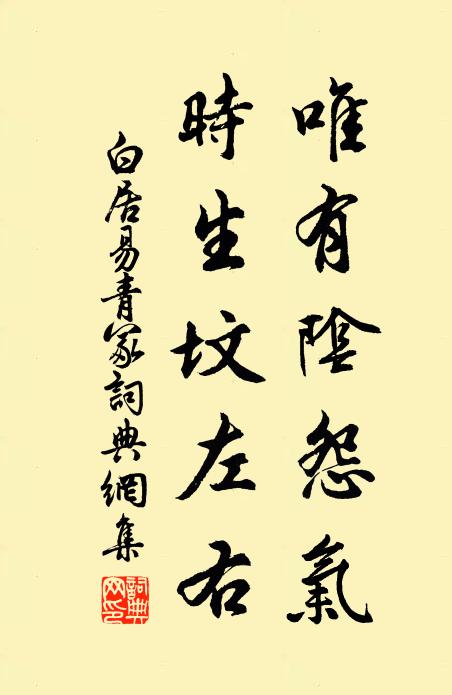 唯有陰怨氣
時生坟左右
白居易青冢詞典網集
詞典網印